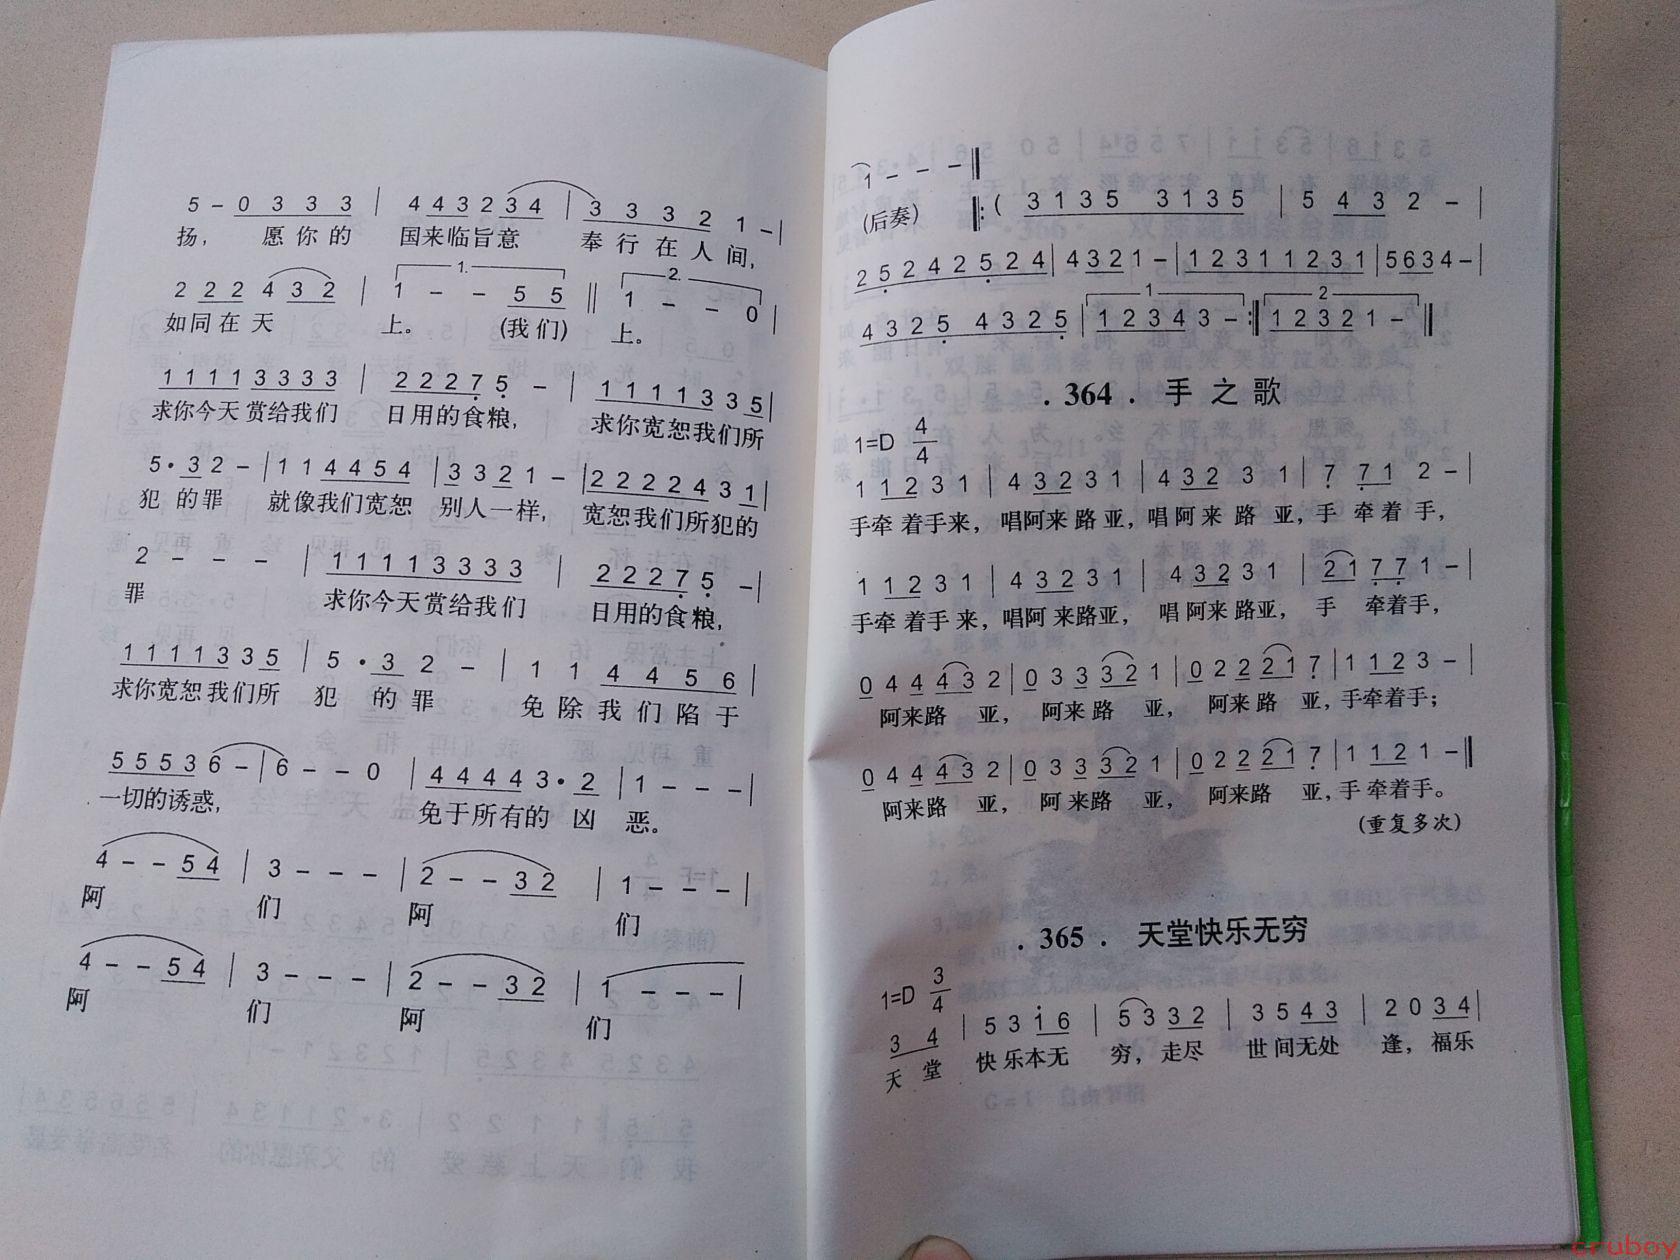 5 – 0 3 3 3 | 4 4 3 2 3 4 | 3 3 3 2 1 – |
扬, 愿你的 国来临旨意 奉行在人间,
2 2 2 2 4 3 2 | 1 – – 5 5 ‖ 1 – – 0 |
1. 2.
如同在天 上。 (我们) 上。
1 1 1 1 3 3 3 3 | 2 2 2 7 5 – | 1 1 1 1 3 3 5 |
求你今天赏给我们 日用的食粮, 求你宽恕我们所
5 · 3 2 – | 1 1 4 4 5 4 | 3 3 2 1 – | 2 2 2 2 4 3 1 |
犯的罪 就像我们宽恕 别人一样, 宽恕我们所犯的
2 – – – | 1 1 1 1 3 3 3 3 | 2 2 2 7 5 – |
罪 求你今天赏给我们 日用的食粮,
1 1 1 1 3 3 5 | 5 · 3 2 – | 1 1 4 4 5 6 |
求你宽恕我们所 犯的罪 免除我们陷于
5 5 5 3 6 – | 6 – – 0 | 4 4 4 4 3 · 2 | 1 – – – |
一切的诱惑, 免于所有的凶恶。
4 – – 5 4 | 3 – – – | 2 – – 3 2 | 1 – – – |
阿 们 阿 们
4 – – 5 4 | 3 – – – | 2 – – 3 2 | 1 – – – |
阿 们 阿 们
1 – – – ‖
(后奏) ‖: ( 3 1 3 5 3 1 3 5 | 5 4 3 2 – |
2 5 2 4 2 5 2 4 | 4 3 2 1 – | 1 2 3 1 1 2 3 1 | 5 6 3 4 – |
1 2
4 3 2 5 4 3 2 5 | 1 2 3 4 3 – :‖ 1 2 3 2 1 – ‖
. 364 . 手之歌
1=D 4/4
1 1 2 3 1 | 4 3 2 3 1 | 4 3 2 3 1 | 7 7 1 2 – |
手牵着手来, 唱阿来路亚, 唱阿来路亚, 手牵着手,
1 1 2 3 1 | 4 3 2 3 1 | 4 3 2 3 1 | 2 1 7 7 1 – |
手牵着手来, 唱阿来路亚, 唱阿来路亚, 手牵着手,
0 4 4 4 3 2 | 0 3 3 3 2 1 | 0 2 2 2 1 7 | 1 1 2 3 – |
阿来路亚, 阿来路亚, 阿来路亚, 手牵着手;
0 4 4 4 3 2 | 0 3 3 3 2 1 | 0 2 2 2 1 7 | 1 1 2 1 – ‖
阿来路亚, 阿来路亚, 阿来路亚, 手牵着手。
(重复多次)
. 365 . 天堂快乐无穷
1=D 3/4
3 4 | 5 3 1 6 | 5 3 3 2 | 3 5 4 3 | 2 0 3 4 |
天堂 快乐本无穷, 走尽世间无处逢, 福乐
cruboy